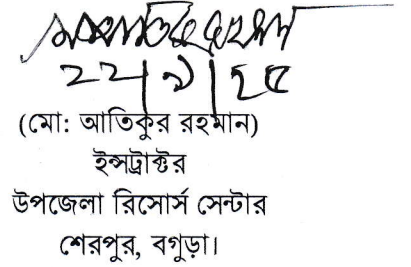 ২২|৯|২৫
(মো: আতিকুর রহমান)
ইন্সট্রাক্টর
উপজেলা রিসোর্স সেন্টার
শেরপুর, বগুড়া।